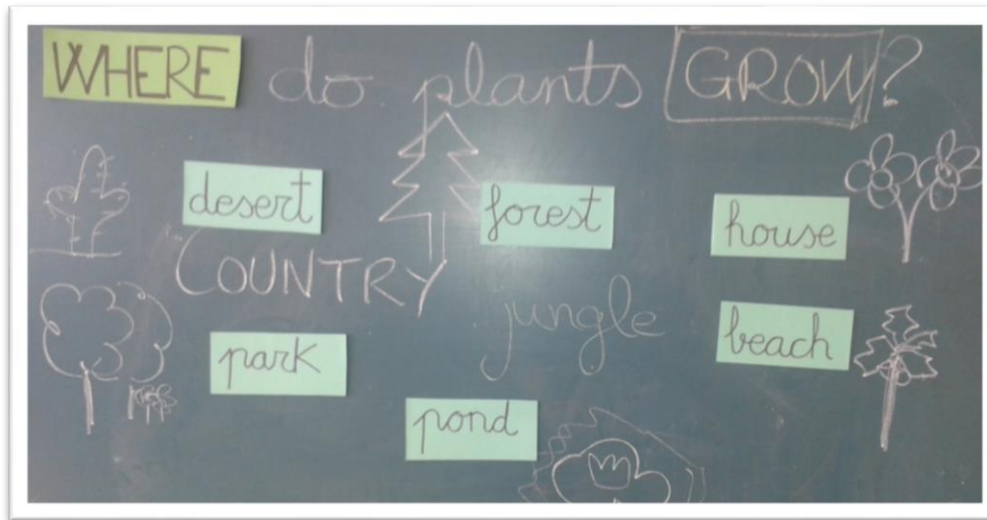 WHERE do plants GROW?
desert forest house
COUNTRY jungle
park beach
pond